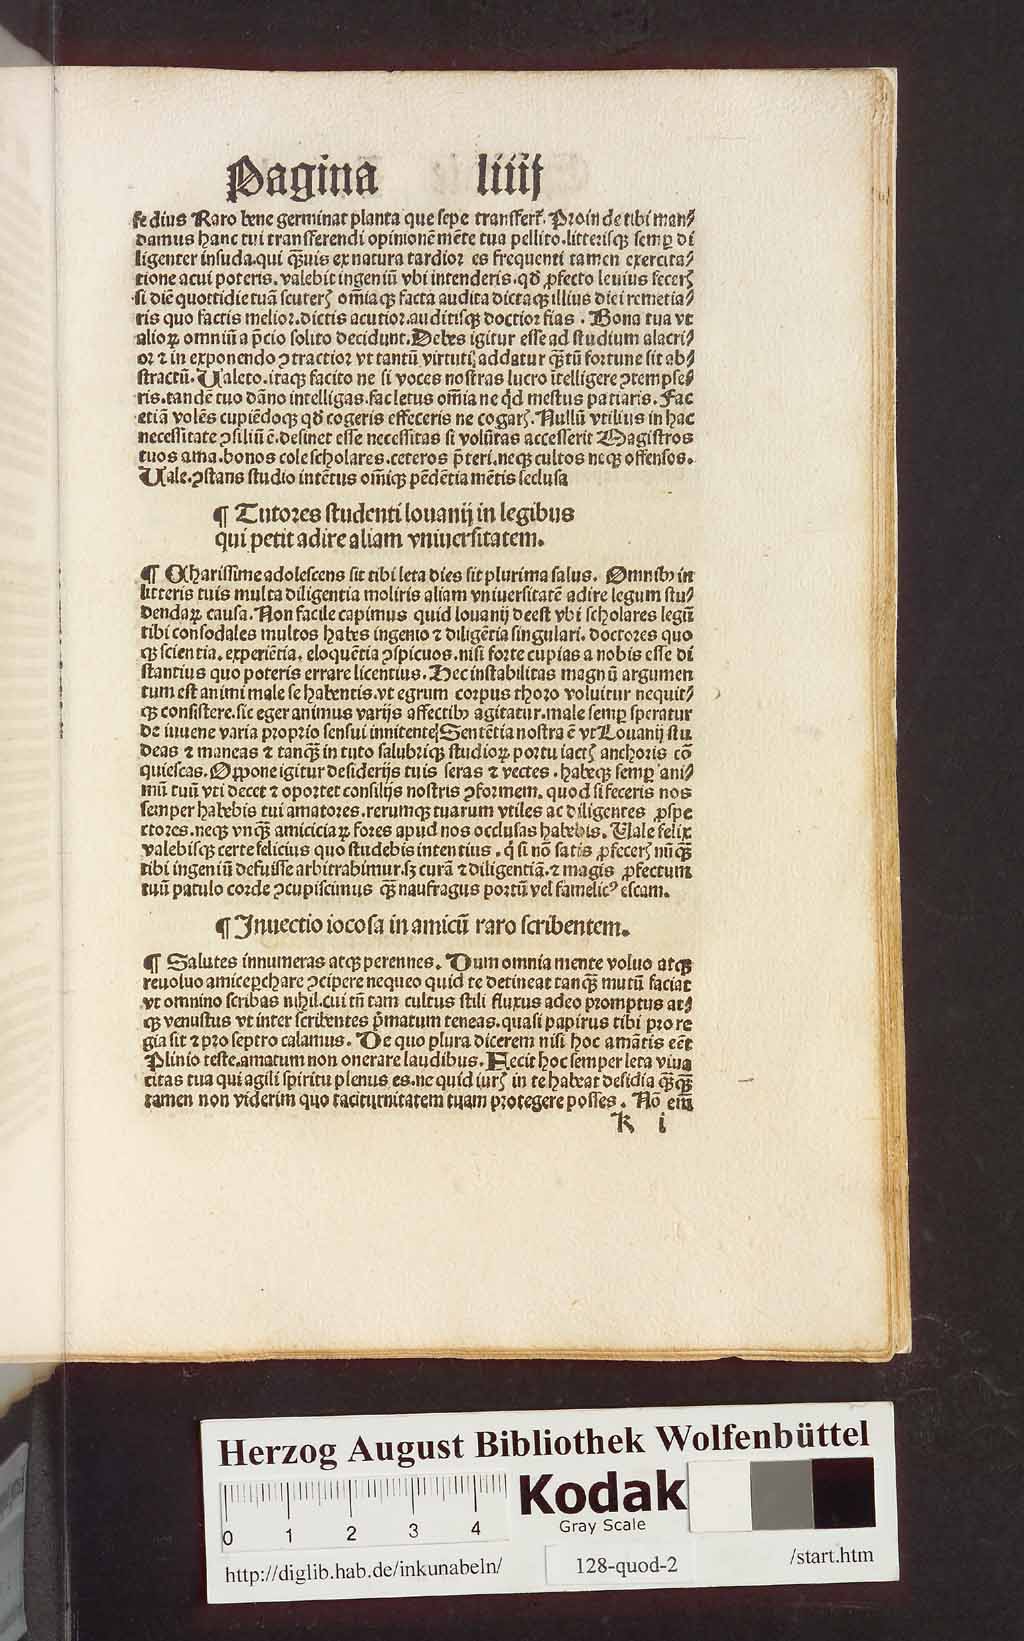 Pagina liiij
fedius Raro bene germinat planta que sepe transfert᷑. Proin de tibi man⸗
damus hanc tui transferendi opinionē mēte tua pellito. litterisqꝫ semꝑ di
ligenter insuda. qui qᷓuis ex natura tardior es frequenti tamen exercita⸗
tione acui poteris. valebit ingeniū vbi intenderis. qd̄ ꝓfecto levius fecerꝭ
si diē quottidie tuā scuterꝭ om̄iaqꝫ facta audita dictaqꝫ illius diei remetia⸗
ris quo factis melior. dictis acutior. auditisqꝫ doctior fias. Bona tua vt
alioꝝ omniū a p̄cio solito decidunt. Debes igitur esse ad studium alacri⸗
or ⁊ in exponendo ꝯtractior vt tantū virtuti addatur qᷓtū fortune sit ab⸗
stractū. Valeto. itaqꝫ facito ne si voces nostras lucro ītelligere ꝯtempse⸗
ris. tandē tuo dāno intelligas. fac letus om̄ia ne qͥd mestus patiaris. Fac
etiā volēs cupiēdoqꝫ qd̄ cogeris effeceris ne cogarꝭ. Nullū vtilius in hac
necessitate ꝯsiliū ē. desinet esse necessitas si volūtas accesserit Magistros
tuos ama. bonos cole scholares. ceteros p̄teri. neqꝫ cultos neqꝫ offensos.
Vale. ꝯstans studio intētus om̄iqꝫ pēdētia mētis seclusa
¶ Tutores studenti lovanij in legibus
qui petit adire aliam vniuersitatem.
¶ Charissime adolescens sit tibi leta dies sit plurima salus. Omnibꝫ in
litteris tuis multa diligentia moliris aliam vniuersitatē adire legum stu⸗
dendaꝝ causa. Non facile capimus quid lovanij deest vbi scholares legū
tibi consodales multos habes ingenio ⁊ diligētia singulari. doctores quo
qꝫ scientia. experiētia. eloquētia ꝯspicuos. nisi forte cupias a nobis esse di
stantius quo poteris errare licentius. Hec instabilitas magnū argumen
tum est animi male se habentis. vt egrum corpus thoro voluitur nequit⸗
qꝫ consistere. sic eger animus varijs affectibꝫ agitatur. male semꝑ speratur
de iuuene varia proprio sensui innitente Sentētia nostra ē vt Louanij stu
deas ⁊ maneas ⁊ tanqᷓ in tuto salubriqꝫ studioꝝ portu iactꝭ anchoris cō
quiescas. Oppone igitur desiderijs tuis seras ⁊ vectes. habeqꝫ semꝑ ani⸗
mū tuū vti decet ⁊ oportet consilijs nostris ꝯformem. quod si feceris nos
semper habebis tui amatores. rerumqꝫ tuarum vtiles ac diligentes ꝓspe
ctores. neqꝫ vnqᷓ amiciciaꝝ fores apud nos occlusas habebis. Vale felix
valebisqꝫ certe felicius quo studebis intentius. qͥ si nō satis ꝓfecerꝭ nūqᷓ
tibi ingeniū defuisse arbitrabimur. sꝫ curā ⁊ diligentiā. ⁊ magis ꝓfectum
tuū patulo corde ꝯcupiscimus qᷓ naufragus portū vel famelicꝰ escam.
¶ Inuectio iocosa in amicū raro scribentem.
¶ Salutes innumeras atqꝫ perennes. Dum omnia mente voluo atqꝫ
revoluo amice ꝑchare ꝯcipere nequeo quid te detineat tanqᷓ mutū faciat
vt omnino scribas nihil. cui tn̄ tam cultus stili fluxus adeo promptus at⸗
qꝫ venustus vt inter scribentes p̄matum teneas. quasi papirus tibi pro re
gia sit ⁊ pro septro calamus. De quo plura dicerem nisi hoc amātis eēt
Plinio teste. amatum non onerare laudibus. Fecit hoc semper leta viua
citas tua qui agili spiritu plenus es. ne quid iurꝭ in te habeat desidia qᷓqᷓ
tamen non viderim quo taciturnitatem tuam protegere posses. Nō eīn
k i
Herzog August Bibliothek Wolfenbüttel
0 1 2 3 4
Kodak
Gray Scale
http://diglib.hab.de/inkunabeln/ 128-quod-2 /start.htm